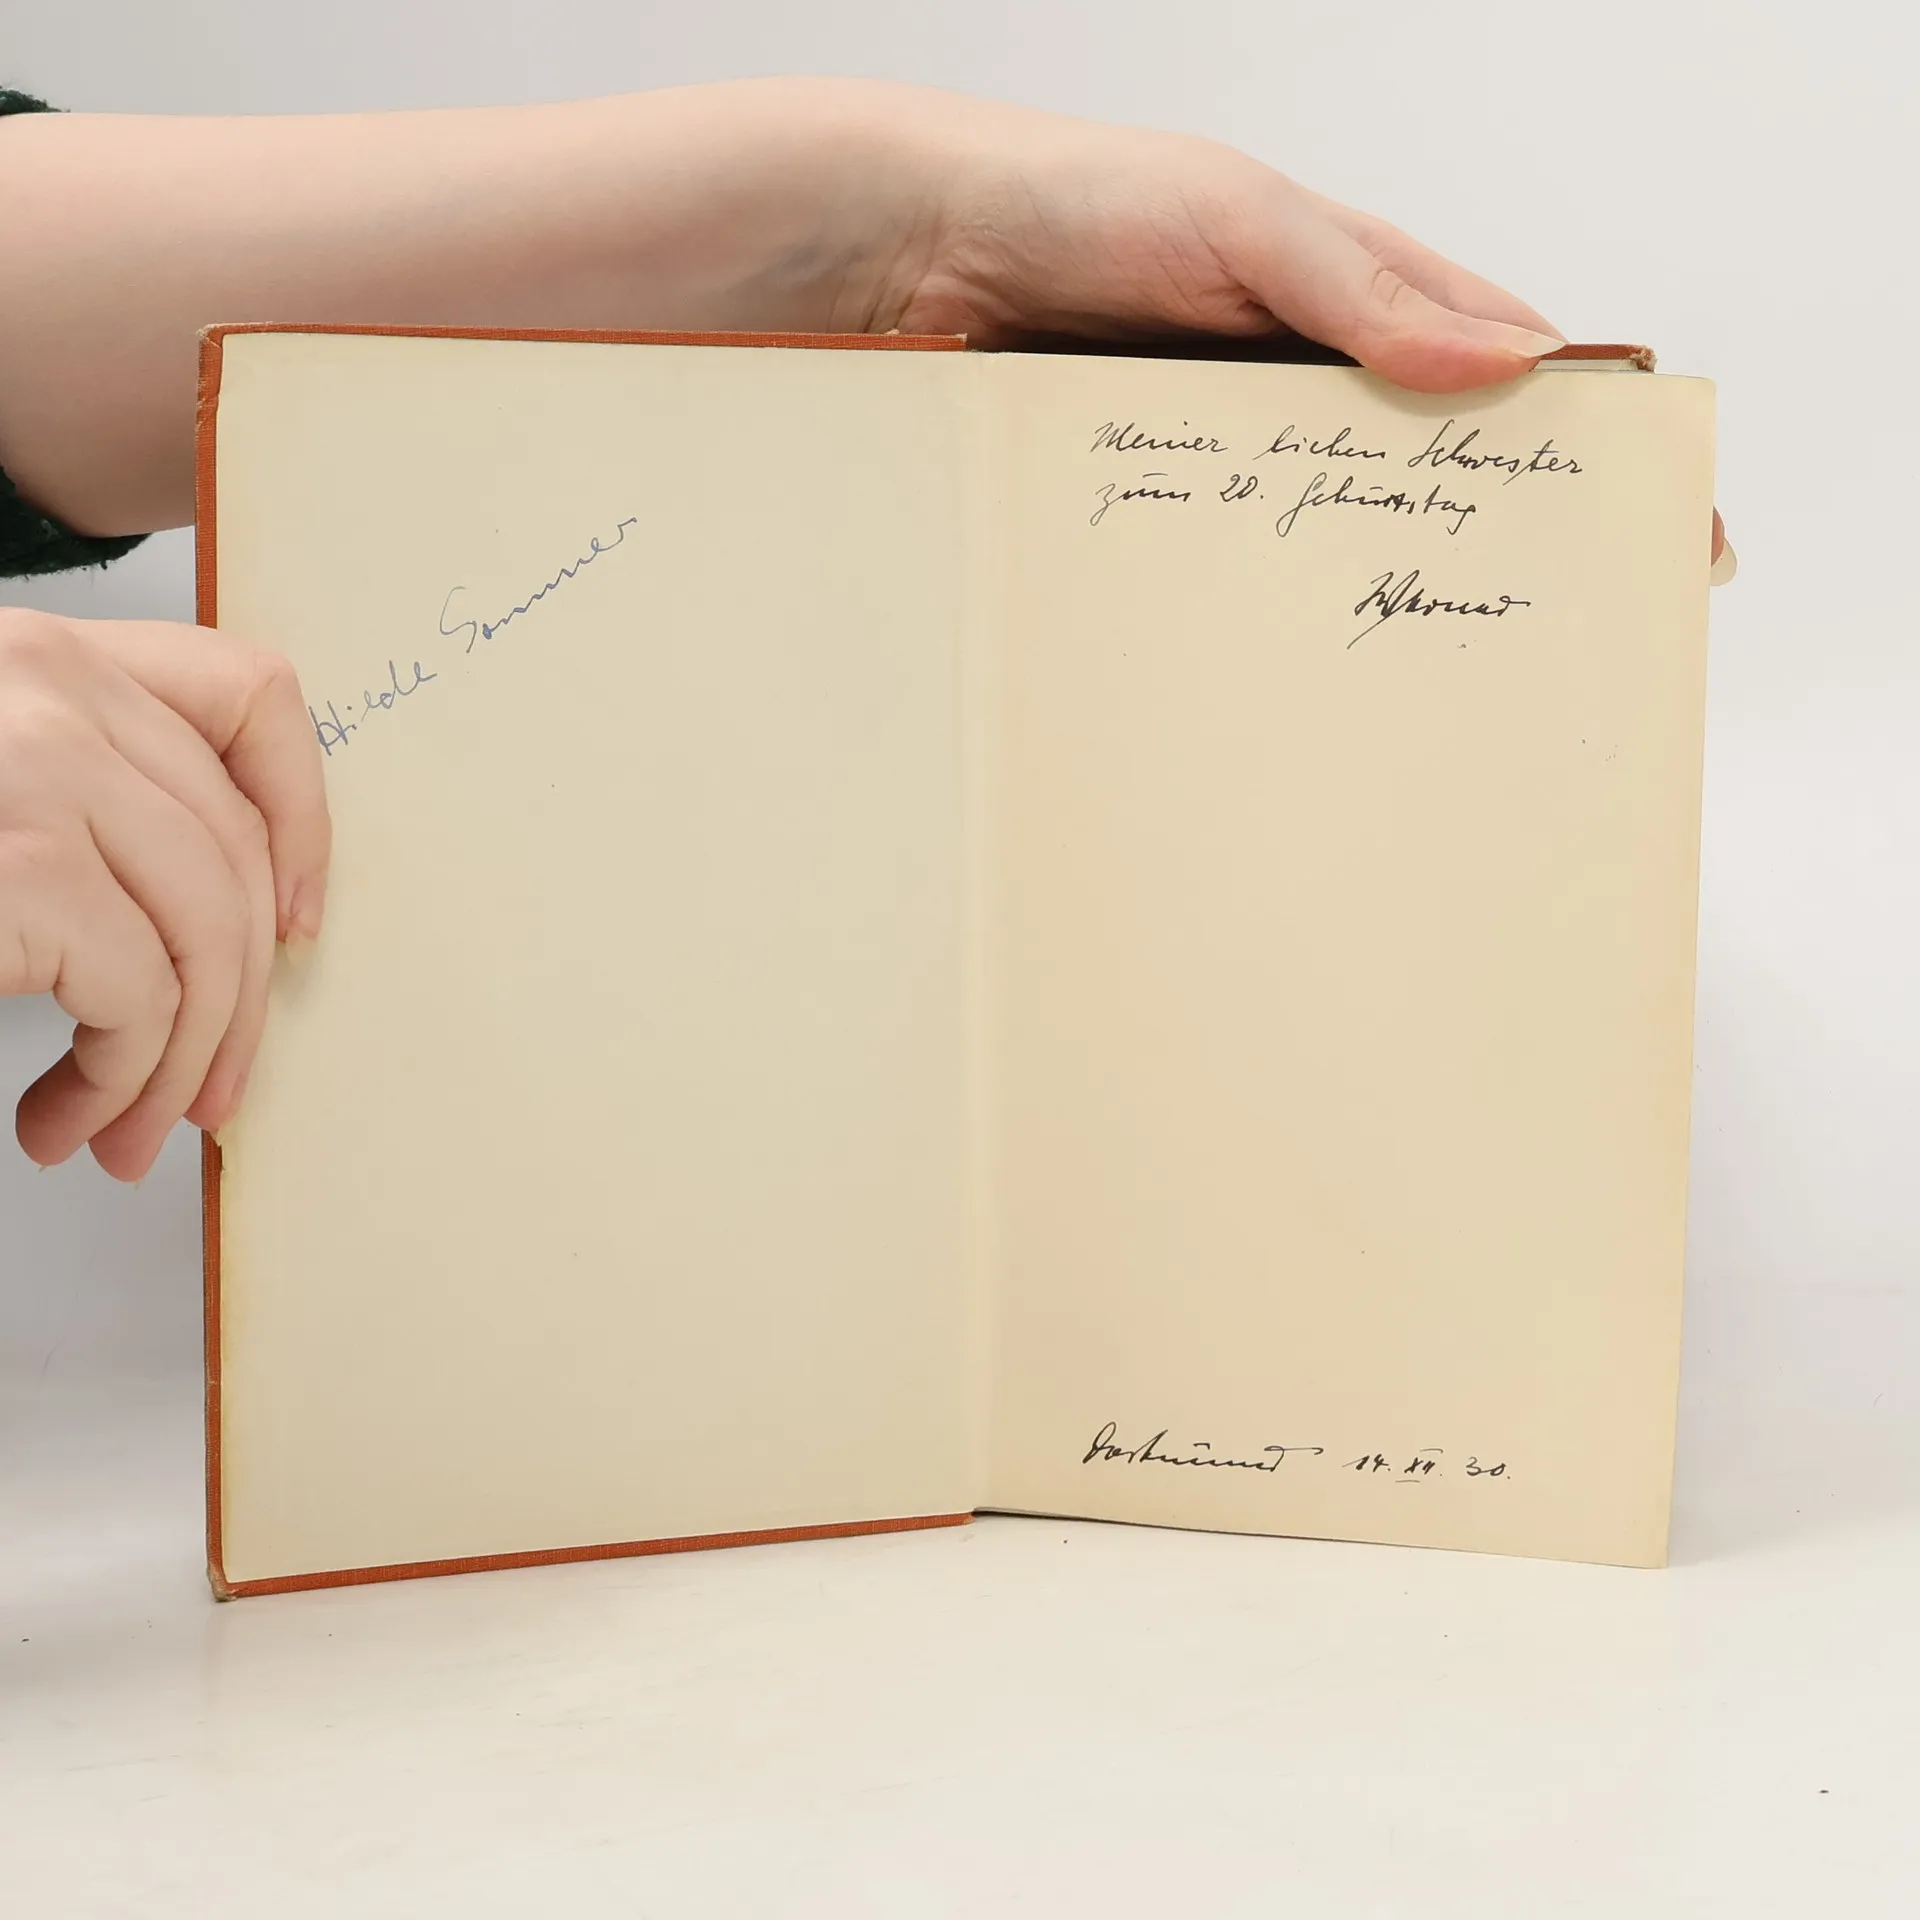 Hilde Sommer
Meiner lieben Schwester
zum 20. Geburtstag
Dortmund 14. XII. 30.